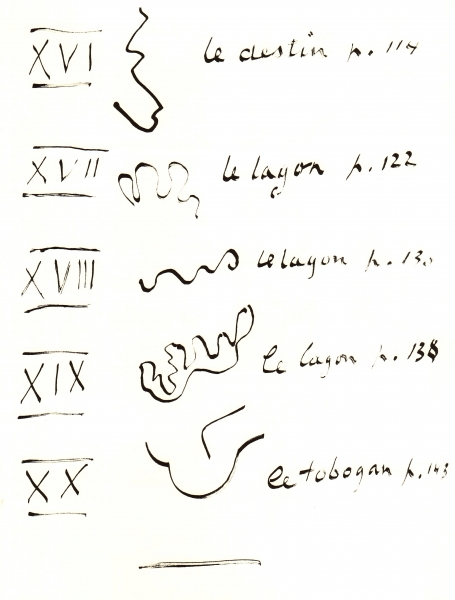 XVI le destin p. 114
XVII le laçon p. 122
XVIII le lagon p. 130
XIX le lagon p. 138
XX le tobogan p. 143